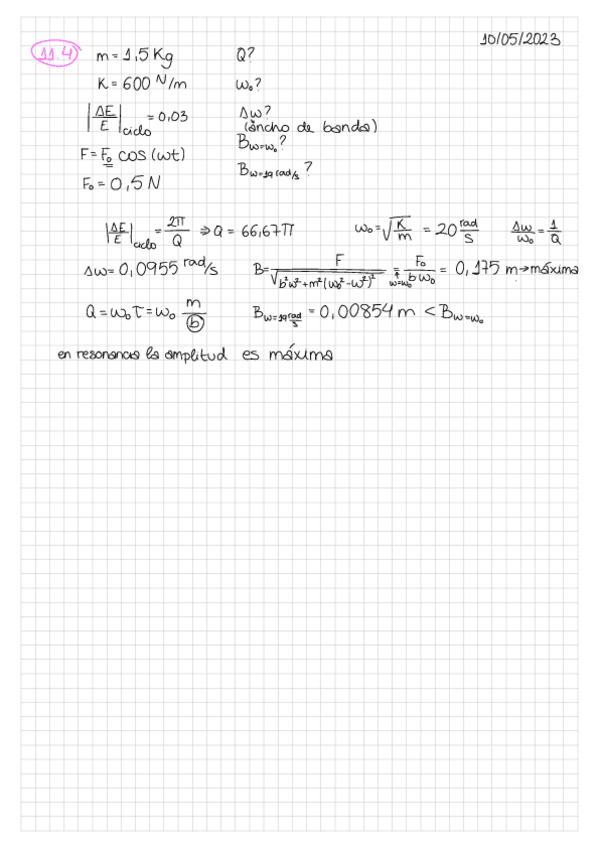 10/05/2023
11.4 m = 1,5 Kg Q?
K = 600 N/m ω₀?
|ΔE/E|ciclo = 0,03 Δω? (ancho de banda)
F = F₀ cos (ωt) Bω=ω₀?
F₀ = 0,5 N Bω=19 rad/s?
|ΔE/E|ciclo = 2π/Q ⇒ Q = 66,67π ω₀ = √(K/m) = 20 rad/s Δω/ω₀ = 1/Q
Δω = 0,0955 rad/s B = F/√(b²ω² + m²(ω₀² - ω²)²) = ↑ω=ω₀ F₀/bω₀ = 0,175 m → máxima
Q = ω₀τ = ω₀ m/b Bω=19 rad/s = 0,00854 m < Bω=ω₀
en resonancia la amplitud es máxima